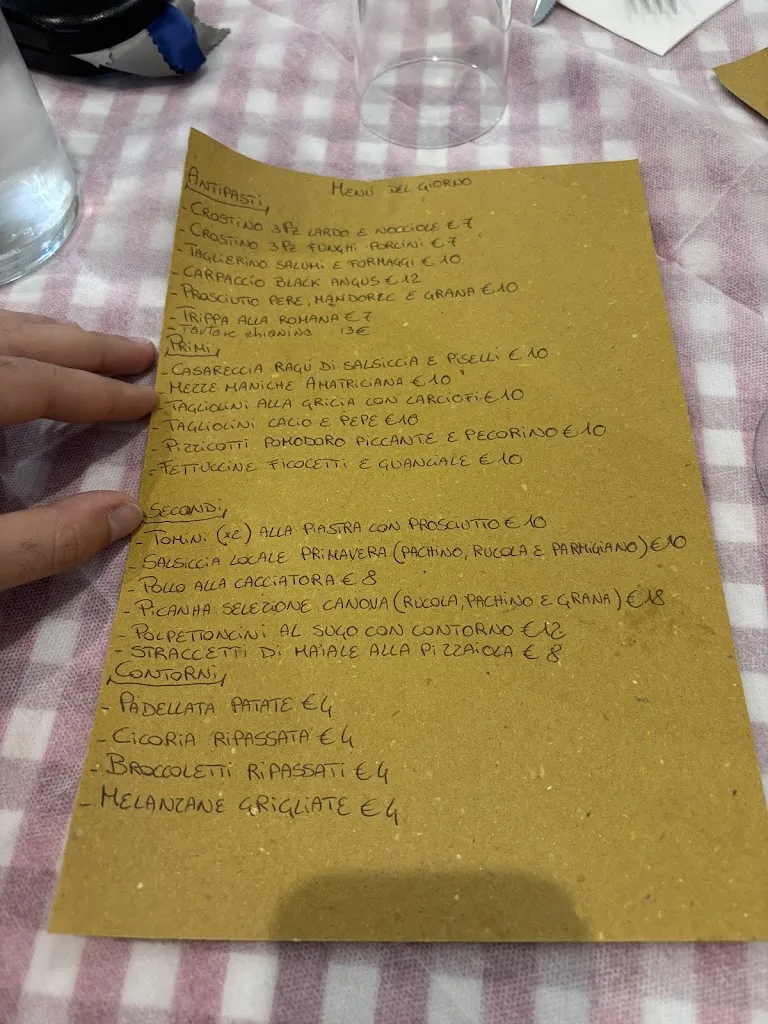 MENÚ DEL GIORNO
ANTIPASTI
- CROSTINO 3PZ LARDO E NOCCIOLE € 7
- CROSTINO 3PZ FUNGHI PORCINI € 7
- TAGLIERINO SALUMI E FORMAGGI € 10
- CARPACCIO BLACK ANGUS € 12
- PROSCIUTTO PERE, MANDORLE E GRANA € 10
- TRIPPA ALLA ROMANA € 7
- TARTARE CHIANINA 13€
PRIMI
- CASARECCIA RAGÚ DI SALSICCIA E PISELLI € 10
- MEZZE MANICHE AMATRICIANA € 10
- TAGLIOLINI ALLA GRICIA CON CARCIOFI € 10
- TAGLIOLINI CACIO E PEPE € 10
- PIZZICOTTI POMODORO PICCANTE E PECORINO € 10
- FETTUCCINE FICOCETTI E GUANCIALE € 10
SECONDI
- TOMINI (x2) ALLA PIASTRA CON PROSCIUTTO € 10
- SALSICCIA LOCALE PRIMAVERA (PACHINO, RUCOLA E PARMIGIANO) € 10
- POLLO ALLA CACCIATORA € 8
- PICANHA SELEZIONE CANOVA (RUCOLA, PACHINO E GRANA) € 18
- POLPETTONCINI AL SUGO CON CONTORNO € 12
- STRACCETTI DI MAIALE ALLA PIZZAIOLA € 8
CONTORNI
- PADELLATA PATATE € 4
- CICORIA RIPASSATA € 4
- BROCCOLETTI RIPASSATI € 4
- MELANZANE GRIGLIATE € 4